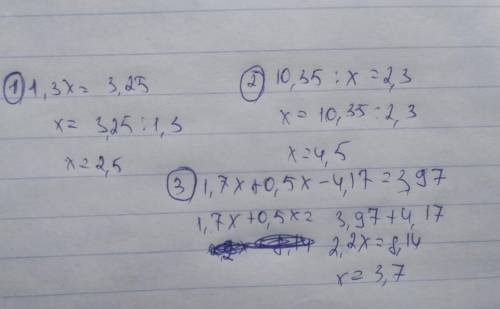 1 1,3x = 3,25
x = 3,25 : 1,3
x = 2,5
2 10,35 : x = 2,3
x = 10,35 : 2,3
x = 4,5
3 1,7x + 0,5x - 4,17 = 3,97
1,7x + 0,5x = 3,97 + 4,17
2,2x = 8,14
x = 3,7